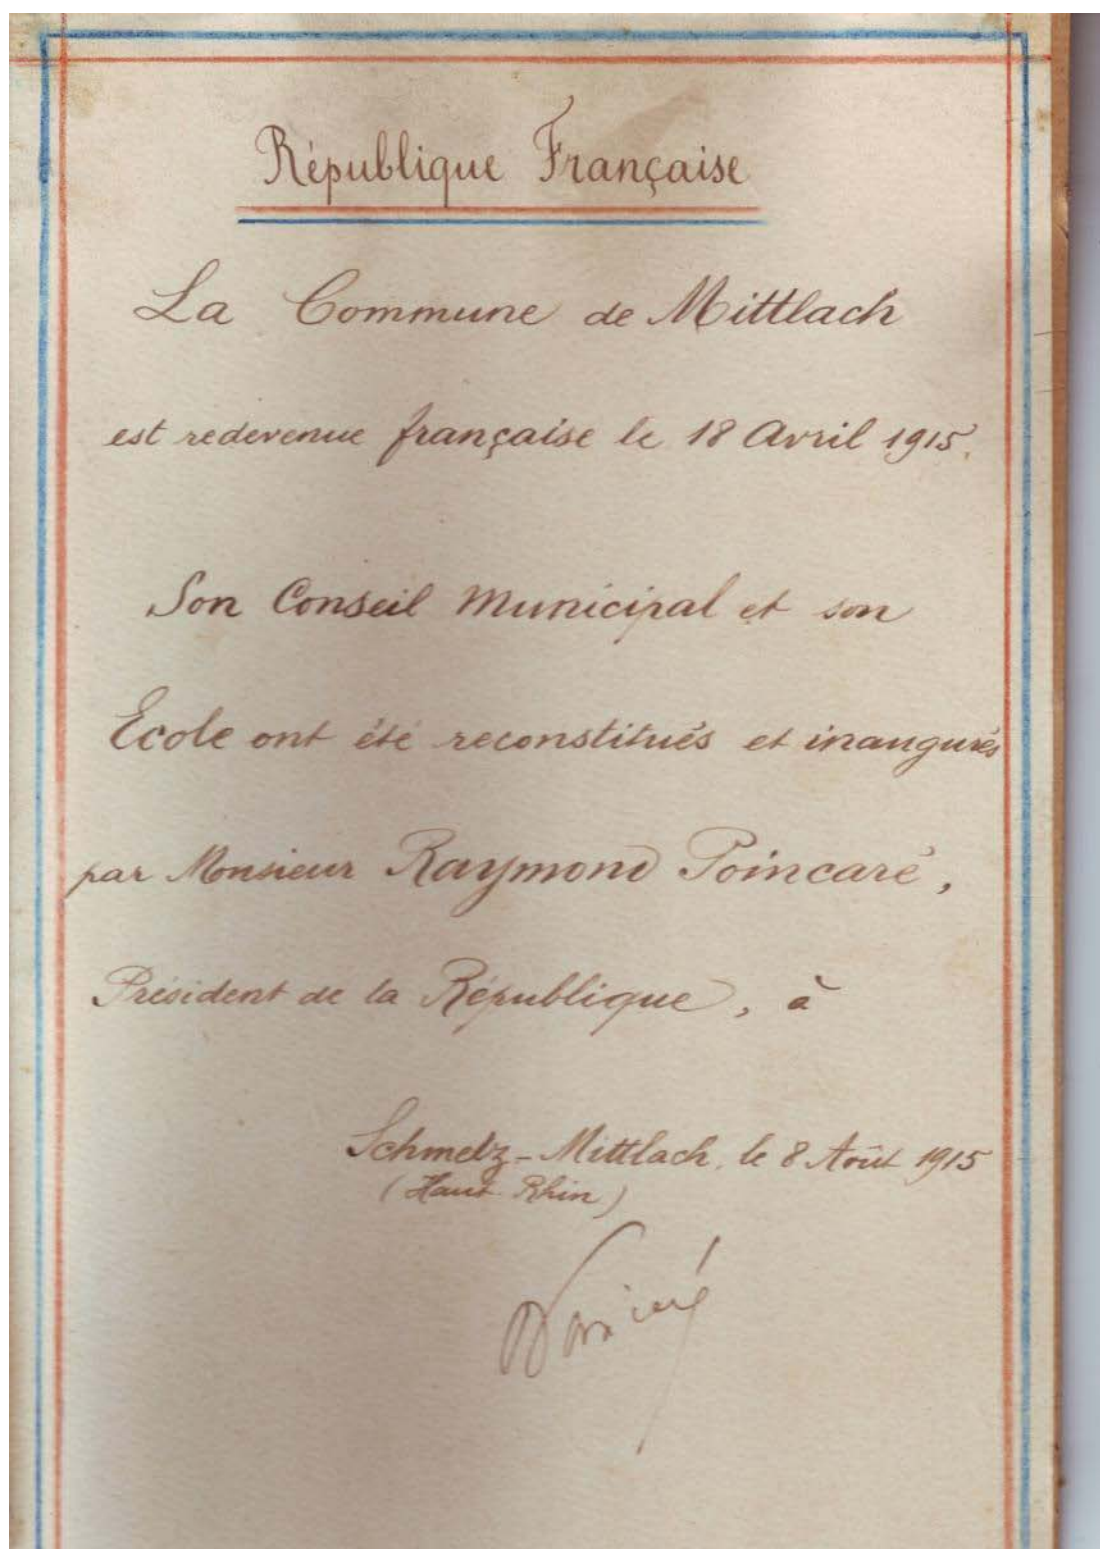 République Française
La Commune de Mittlach
est redevenue française le 18 Avril 1915.
Son Conseil Municipal et son
École ont été reconstitués et inaugurés
par Monsieur Raymond Poincaré,
Président de la République, à
Schmelz-Mittlach, le 8 Août 1915
(Haut-Rhin)
Poincaré